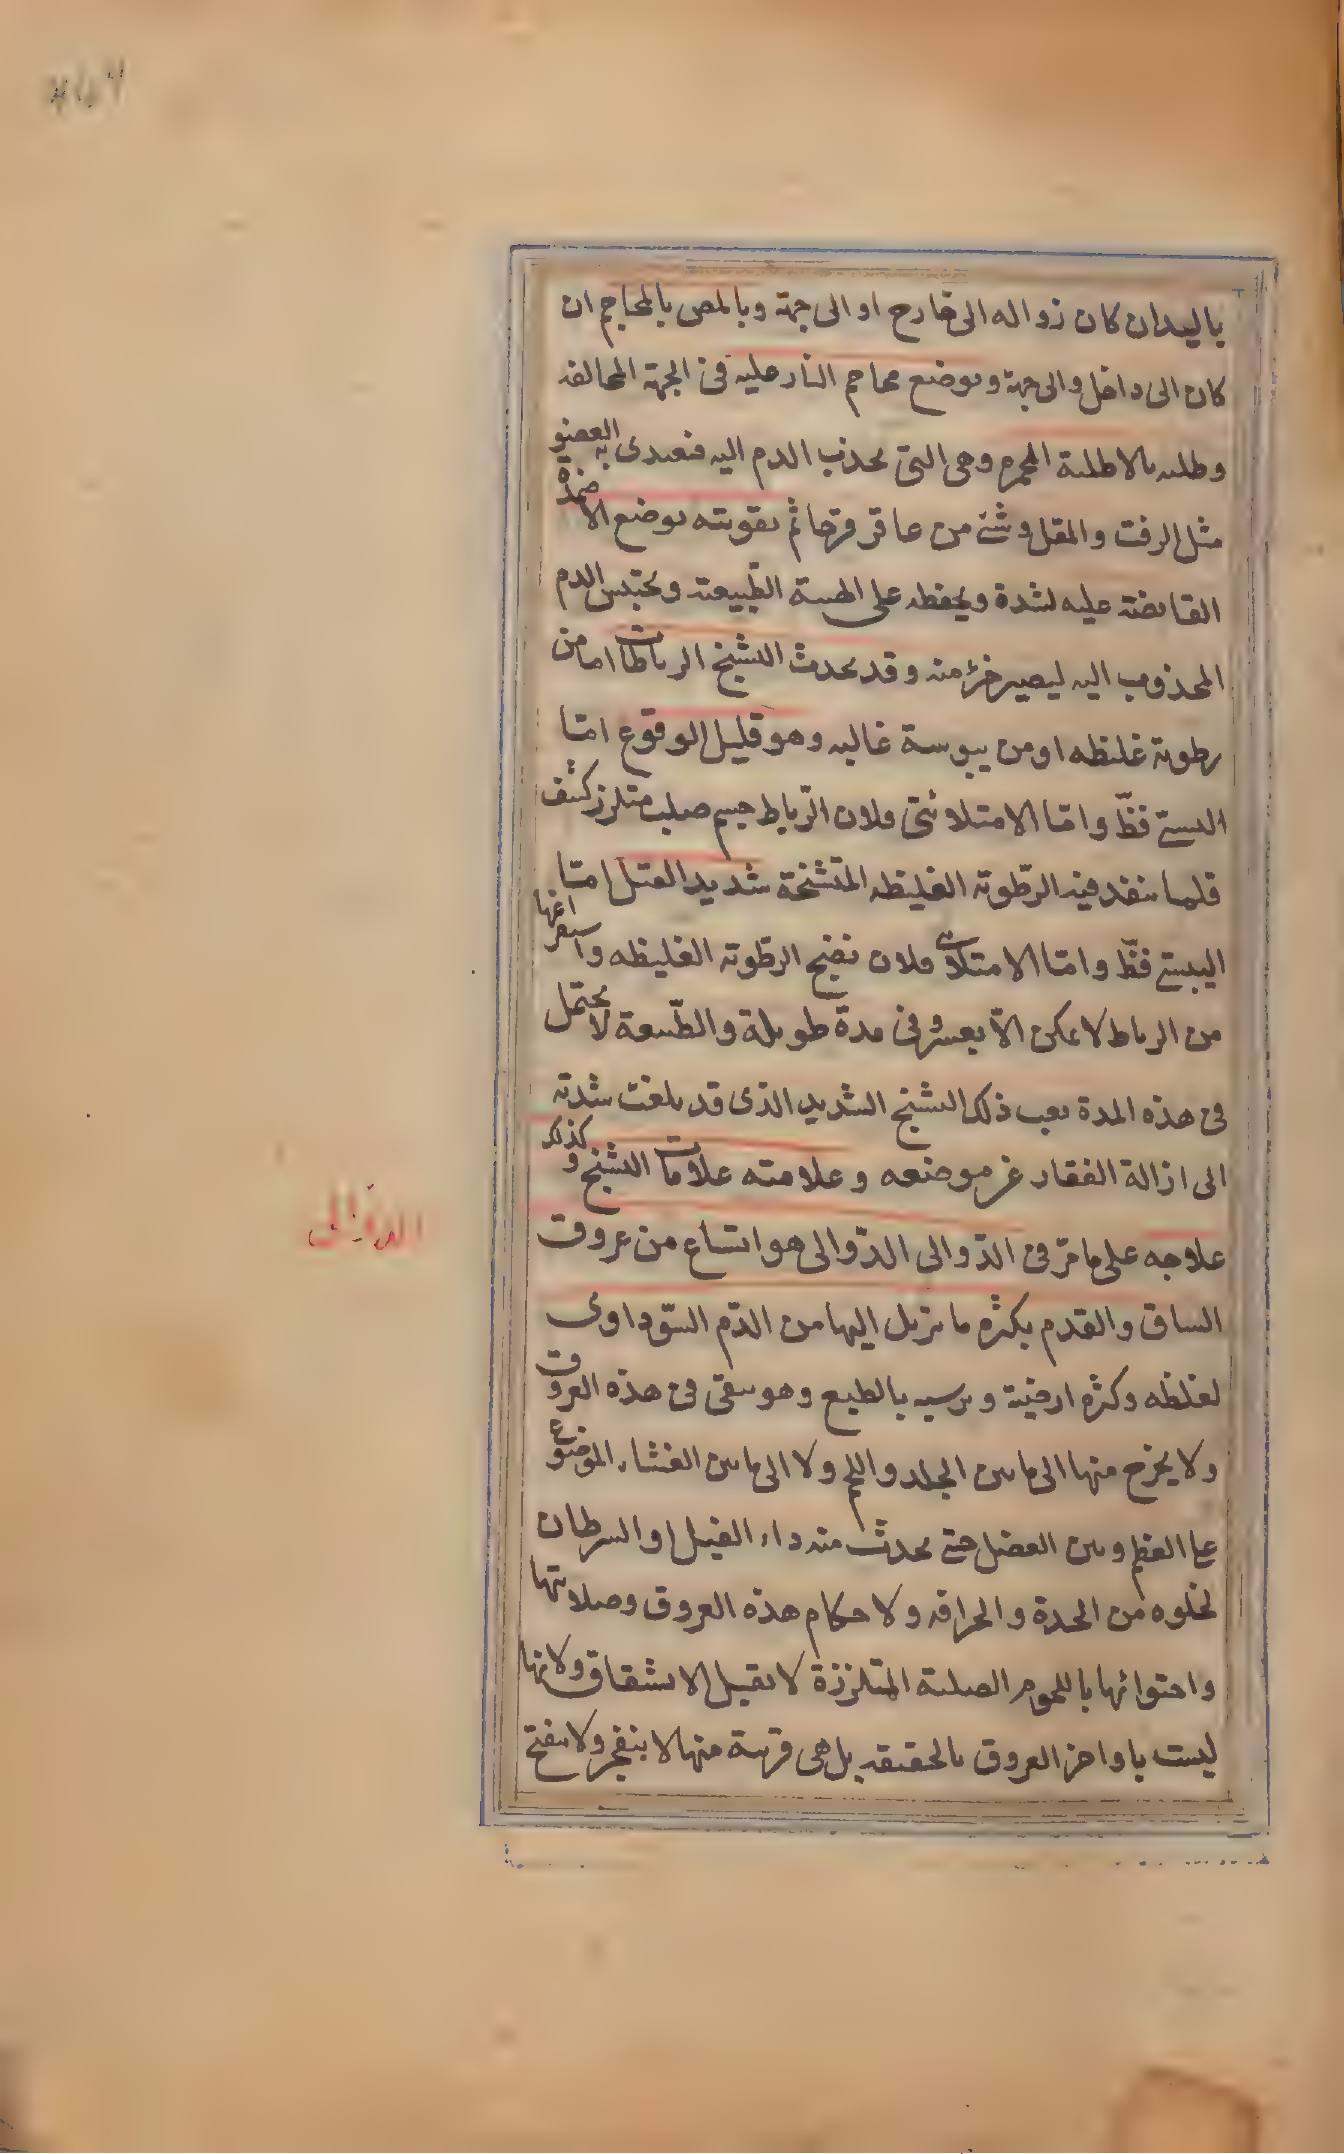 باليدان كان زواله الى خارج او الى جهة وبالمص بالمحاجم ان
كان الى داخل والى جهة وبوضع محاجم النار عليه فى الجهة المخالفه
وطليه بالاطلية المحمره وهى التى تجذب الدم اليه فتعدى به العضو
مثل الزفت والمقل وشئ من عاقر قرحا ثم تقويته بوضع الاضمدة
القابضة عليه لشدة ويحفظه على الهيئة الطبيعية ويحتبس الدم
المجذوب اليه ليصير جزء منه وقد يحدث التشنج الرباطات اما من
رطوبة غليظه او من يبوسة غالبه وهو قليل الوقوع امّا
اليبسى فظّ وامّا الامتلائى فلان الرّباط جسم صلب متلزز كثيف
قلما ينفذ فيه الرّطوبة الغليظه المتشنجة شديد القتل امّا
اليبسى فظّ وامّا الامتلائى فلان نضج الرطوبة الغليظه واستفراغها
من الرباط لا يمكن الّا بعسر وفى مدة طويلة والطّبيعة لا يحتمل
فى هذه المدة تعب ذلك التشنج الشديد الذى قد بلغت شدته
الى ازالة الفقار عن موضعه وعلامته علامات التشنج وكذلك
علاجه على ما مرّ فى الدّوالى الدّوالى هو اتساع من عروق
الساق والقدم بكثرة ما ينزل اليها من الدّم السّوداوى
لغلظه وكثرة ارضيته وترسبه بالطبع وهو يبقى فى هذه العروق
ولا يخرج منها الى ما بين الجلد واللحم ولا الى ما بين الغشاء الموضوع
على العظم وبين العضل حتى يحدث منه داء الفيل او السرطان
لخلوه من الحدة والحرافه ولاحكام هذه العروق وصلابتها
واحتوائها باللحوم الصلبة المتلززة لا تقبل الانشقاق ولانها
ليست باواخر العروق بالحقيقه بل هى قريبة منها لا ينفجر ولا ينفتح
الدوالى